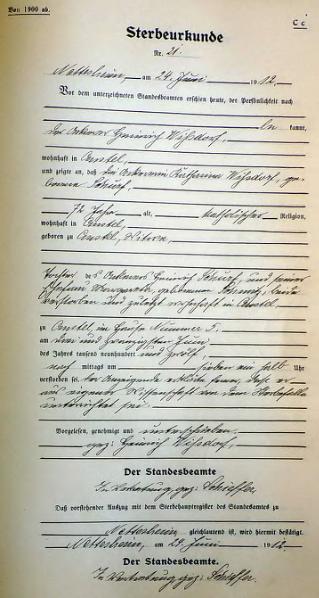 Von 1900 ab.
C c
Sterbeurkunde
Nr. 21
Nettersheim, am 24. Juni 1912.
Vor dem unterzeichneten Standesbeamten erschien heute, der Persönlichkeit nach
kannt,
der Ackerer Heinrich
wohnhaft in
und zeigte an, daß die Katharina
72 Jahre alt, katholischer Religion,
wohnhaft in
geboren zu
Tochter des Ackerers Heinrich und seiner
Ehefrau geborenen beide
verstorben und zuletzt wohnhaft in
zu im Hause Nummer 5,
am drei und zwanzigsten Juni
des Jahres tausend neunhundert und zwölf,
nach mittags um sieben ein halb Uhr
verstorben sei. Der Anzeigende erklärte ferner, daß er
aus eigener Wissenschaft von dem Sterbefalle
unterrichtet sei.
Vorgelesen, genehmigt und unterschrieben
gez: Heinrich
Der Standesbeamte
In Vertretung gez:
Daß vorstehender Auszug mit dem Sterbehauptregister des Standesamtes zu
Nettersheim gleichlautend ist, wird hiermit bestätigt.
Nettersheim, am 24 Juni 1912.
Der Standesbeamte.
In Vertretung gez: